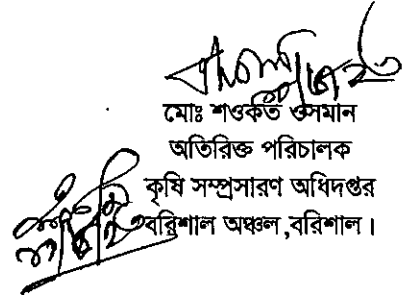 মোঃ শওকত ওসমান
অতিরিক্ত পরিচালক
কৃষি সম্প্রসারণ অধিদপ্তর
বরিশাল অঞ্চল,বরিশাল।